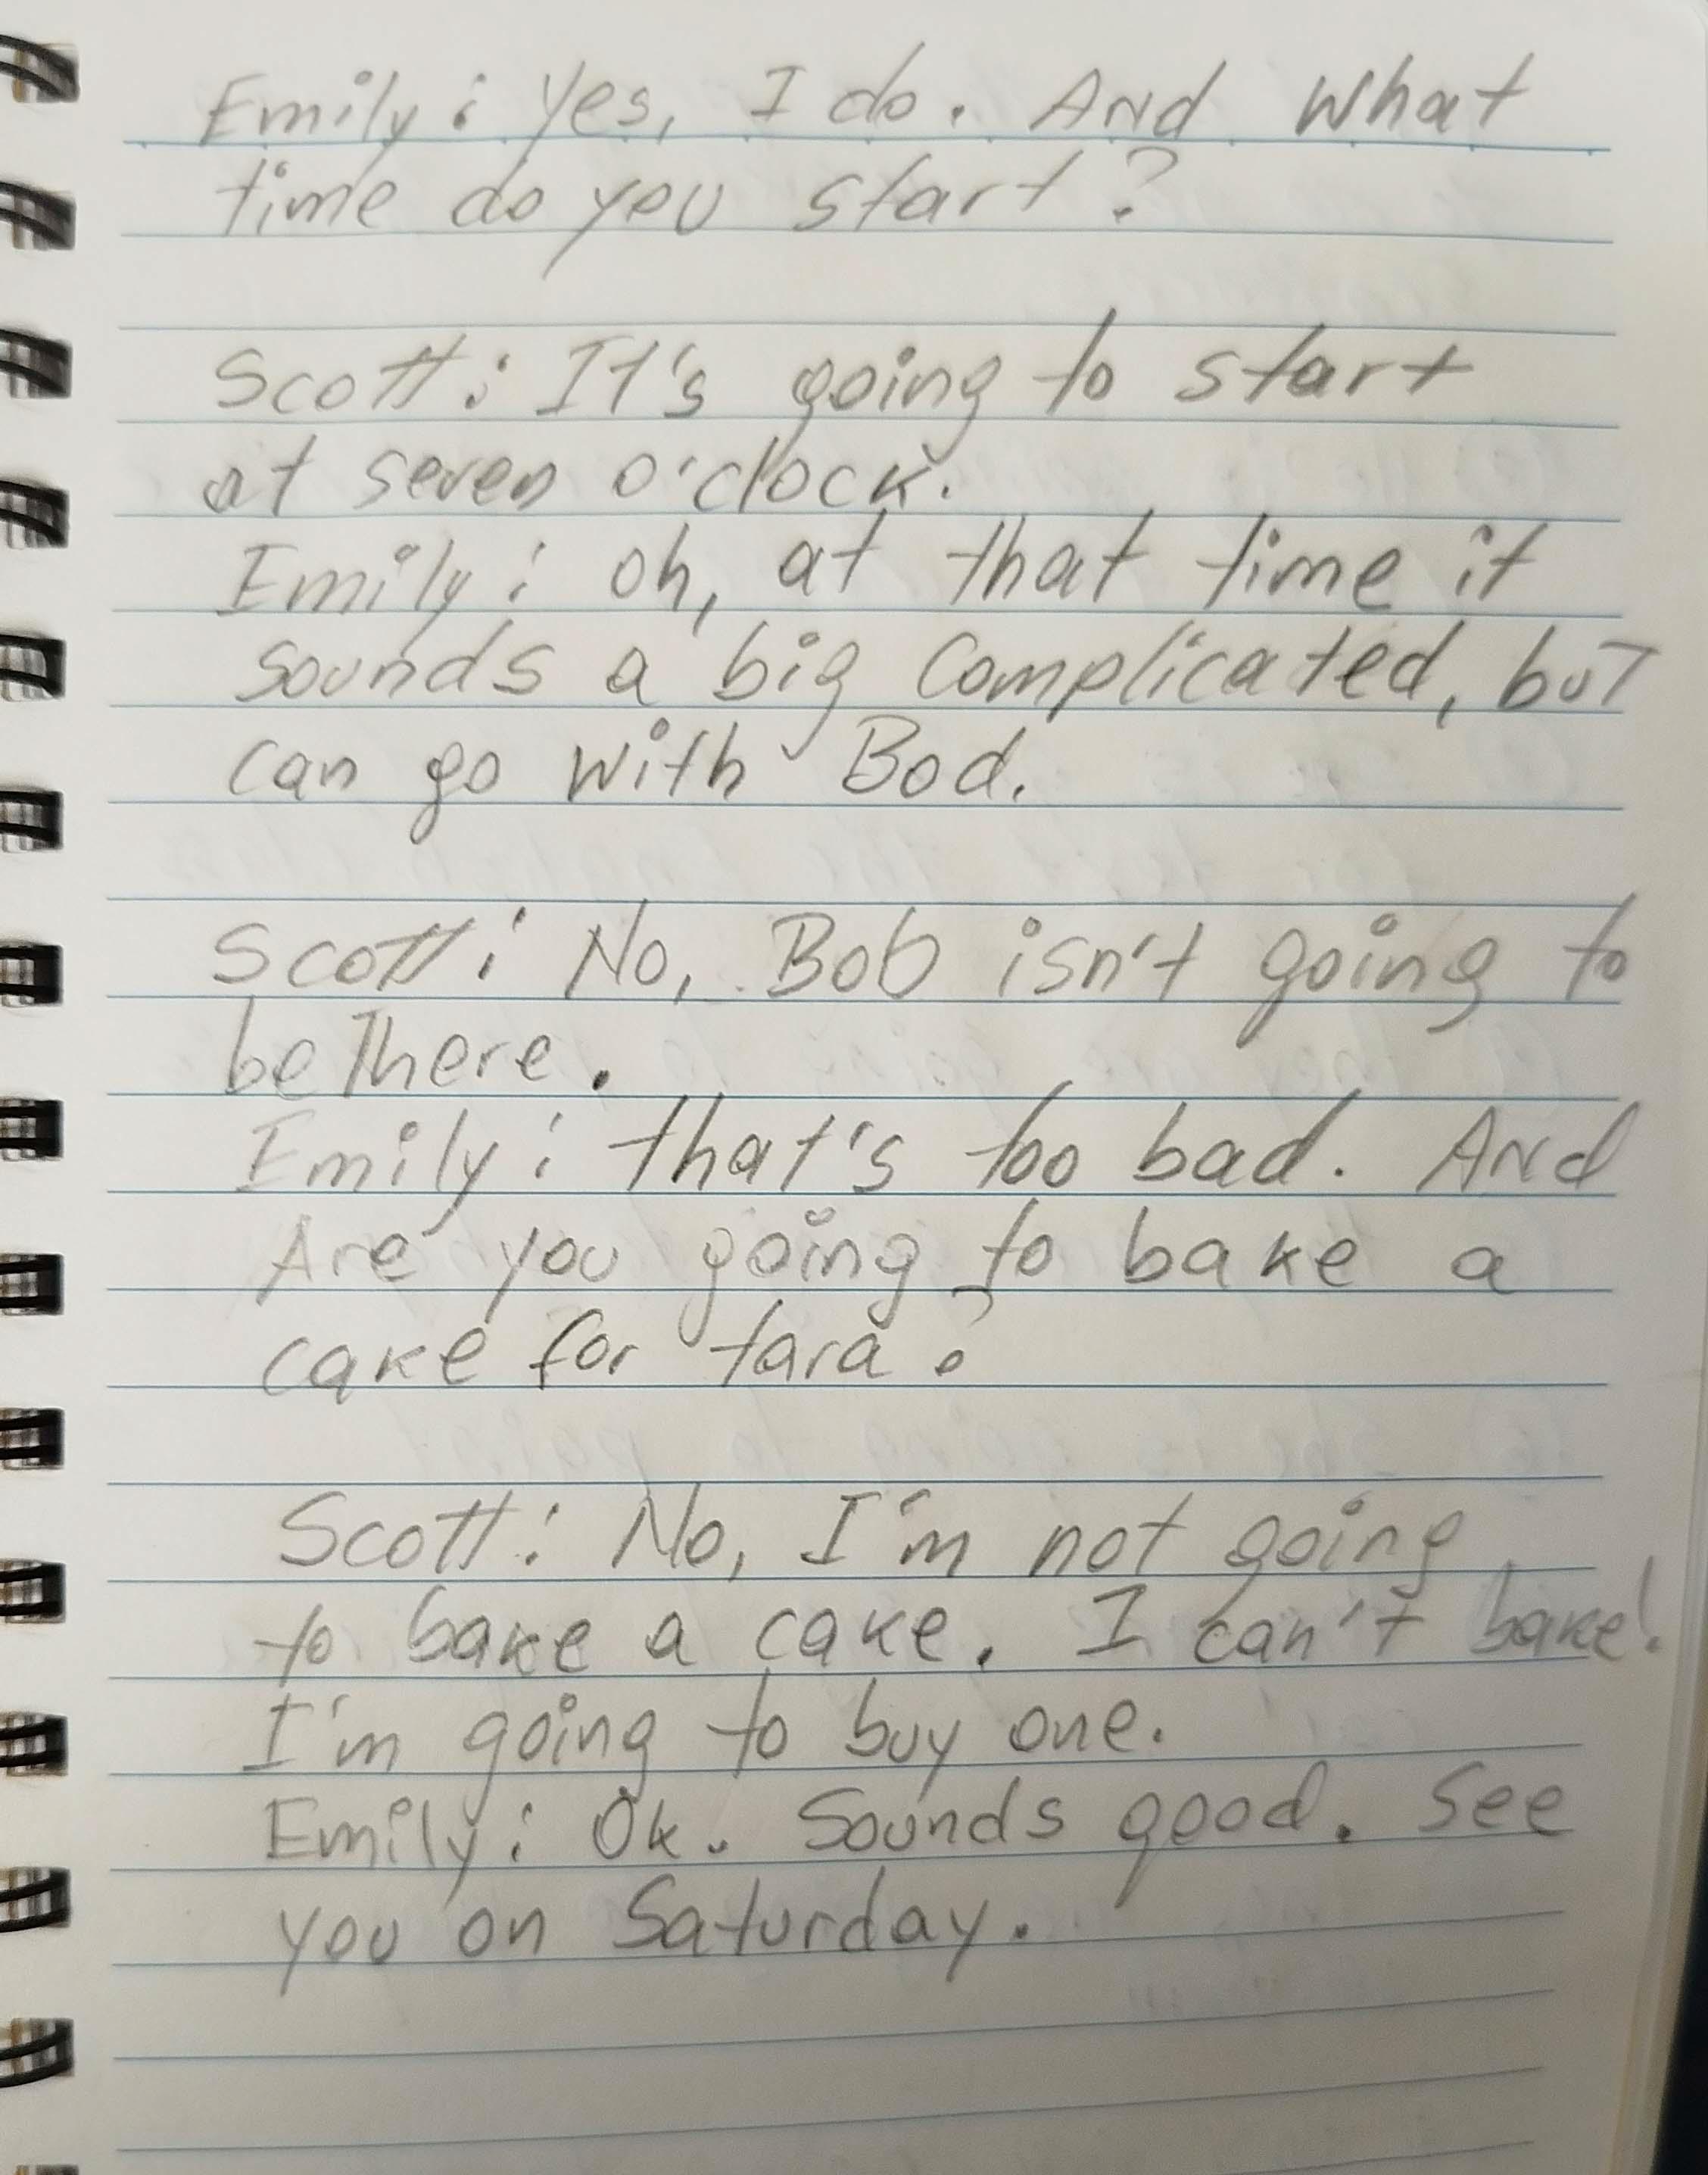 Emily: Yes, I do. And what
time do you start?
Scott: It's going to start
at seven o'clock.
Emily: oh, at that time it
sounds a big complicated, but
can go with Bod.
Scott: No, Bob isn't going to
be There.
Emily: that's too bad. And
Are you going to bake a
cake for tara?
Scott: No, I'm not going
to bake a cake. I can't bake!
I'm going to buy one.
Emily: Ok. Sounds good. See
you on Saturday.